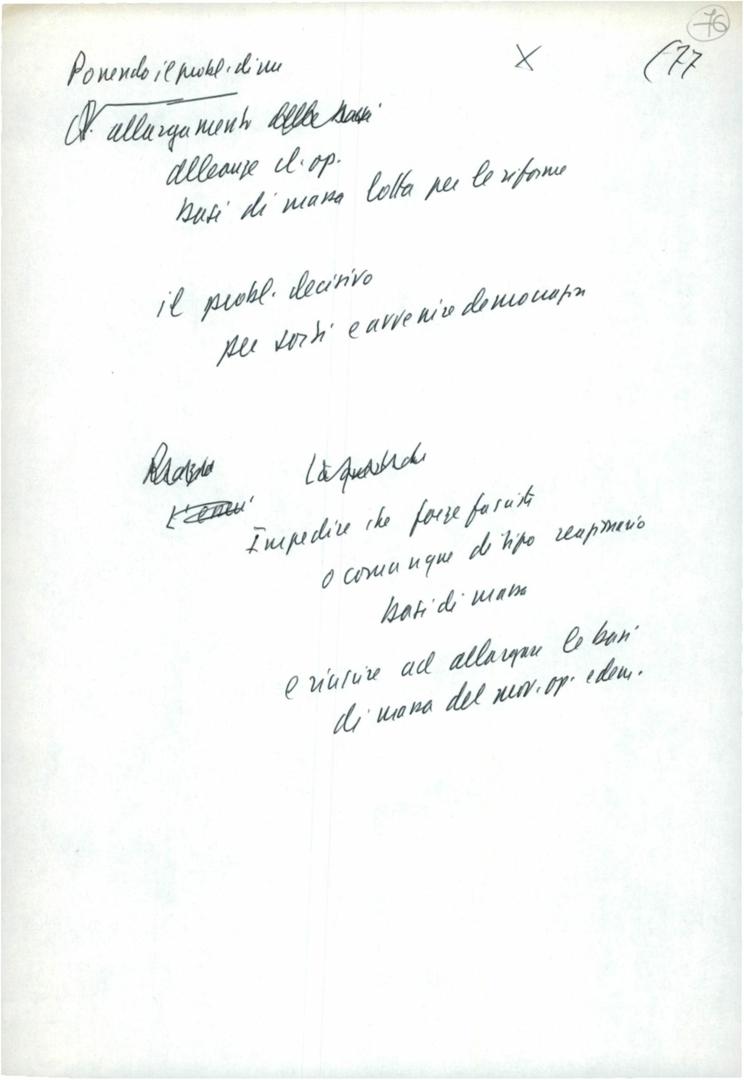 76
X (77
Ponendo il probl. di un
allargamento delle basi
alleanze cl. op.
basi di massa lotta per le riforme
il probl. decisivo
per sorti e avvenire democrazia
Impedire che forze fasciste
o comunque di tipo reazionario
basi di massa
e riuscire ad allargare le basi
di massa del mov. op. e dem.